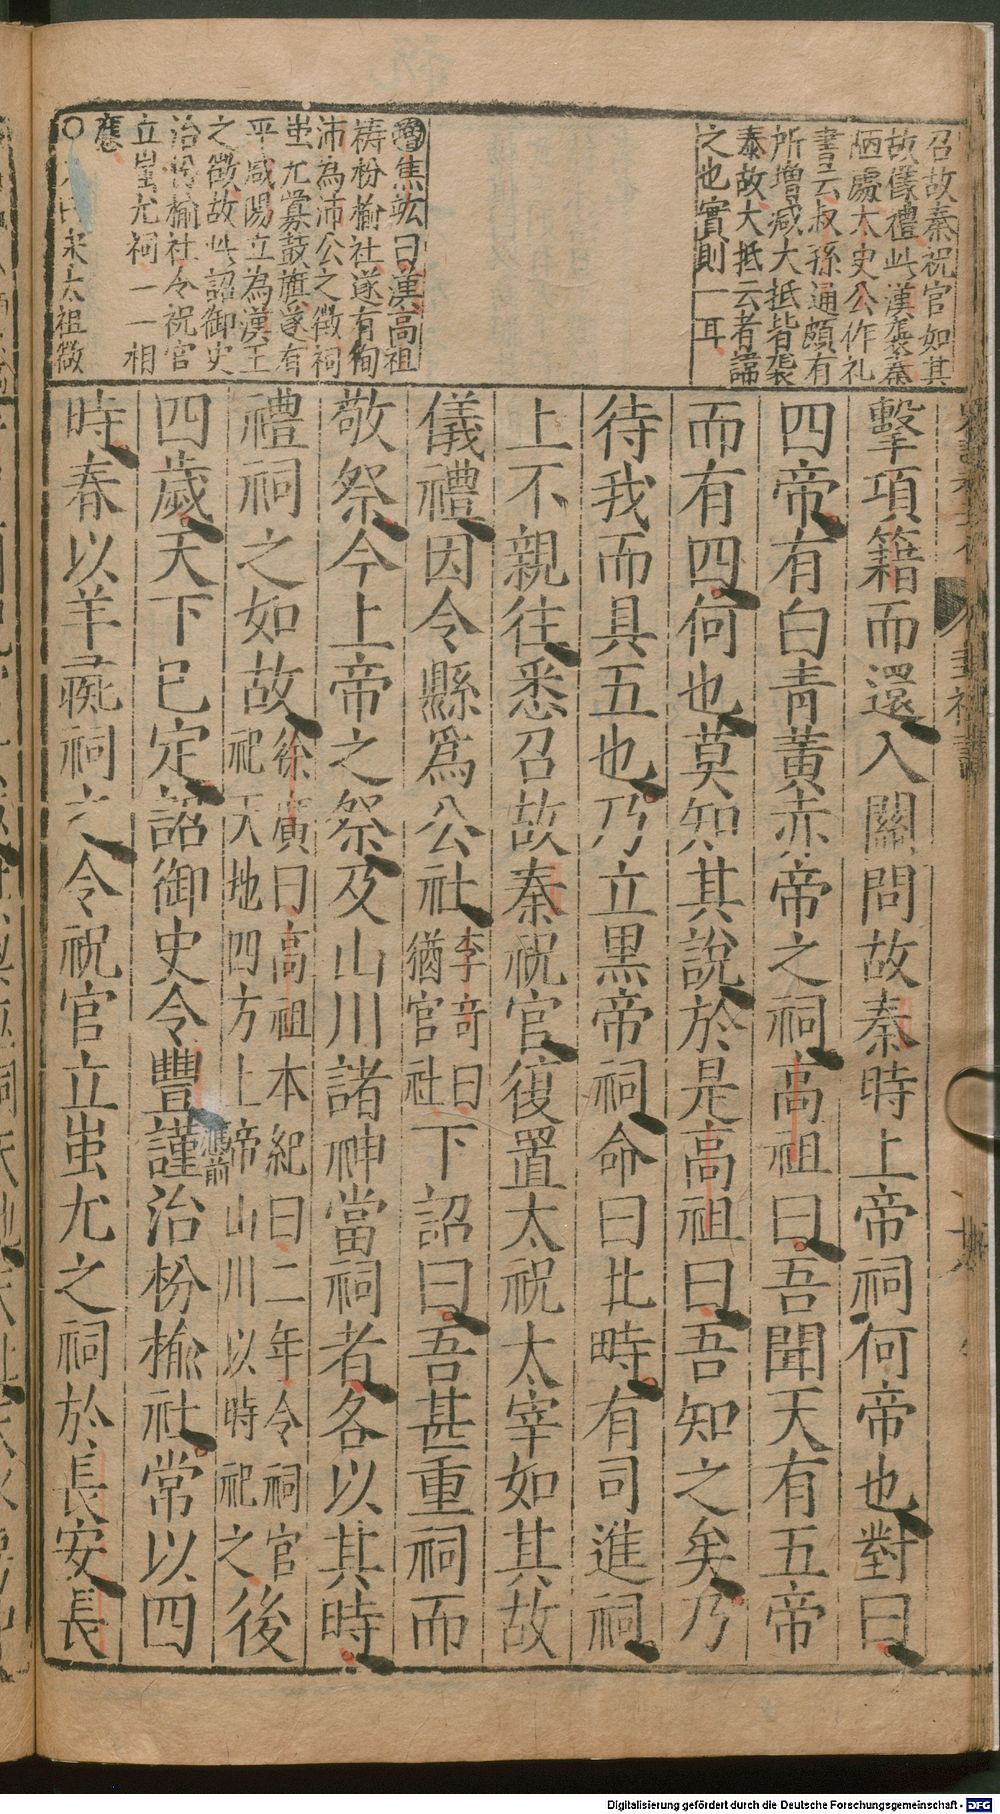 召故秦祝官如其
故儀禮此漢襲秦
陋處太史公作礼
書云叔孫通頗有
所增减大抵皆襲
秦故大抵云者諦
之也實則一耳
增焦竑曰漢高祖
祷枌榆社遂有徇
沛為沛公之徵祠
蚩尤釁鼓旗遂有
平咸陽立為漢王
之徵故此詔御史
治枌榆社令祝官
立蚩尤祠一一相
應
宋太祖微
擊項籍而還入關問故秦時上帝祠何帝也對曰
四帝有白青黃赤帝之祠高祖曰吾聞天有五帝
而有四何也莫知其說於是高祖曰吾知之矣乃
待我而具五也乃立黑帝祠命曰北畤有司進祠
上不親往悉召故秦祝官復置太祝太宰如其故
儀禮因令縣爲公社李奇曰猶官社下詔曰吾甚重祠而
敬祭今上帝之祭及山川諸神當祠者各以其時
禮祠之如故徐廣曰高祖本紀曰二年令祠官祀天地四方上帝山川以時祀之後
四歲天下已定詔御史令豐謹治枌榆社常以四
時春以羊彘祠之令祝官立蚩尤之祠於長安長
Digitalisierung gefördert durch die Deutsche Forschungsgemeinschaft - DFG